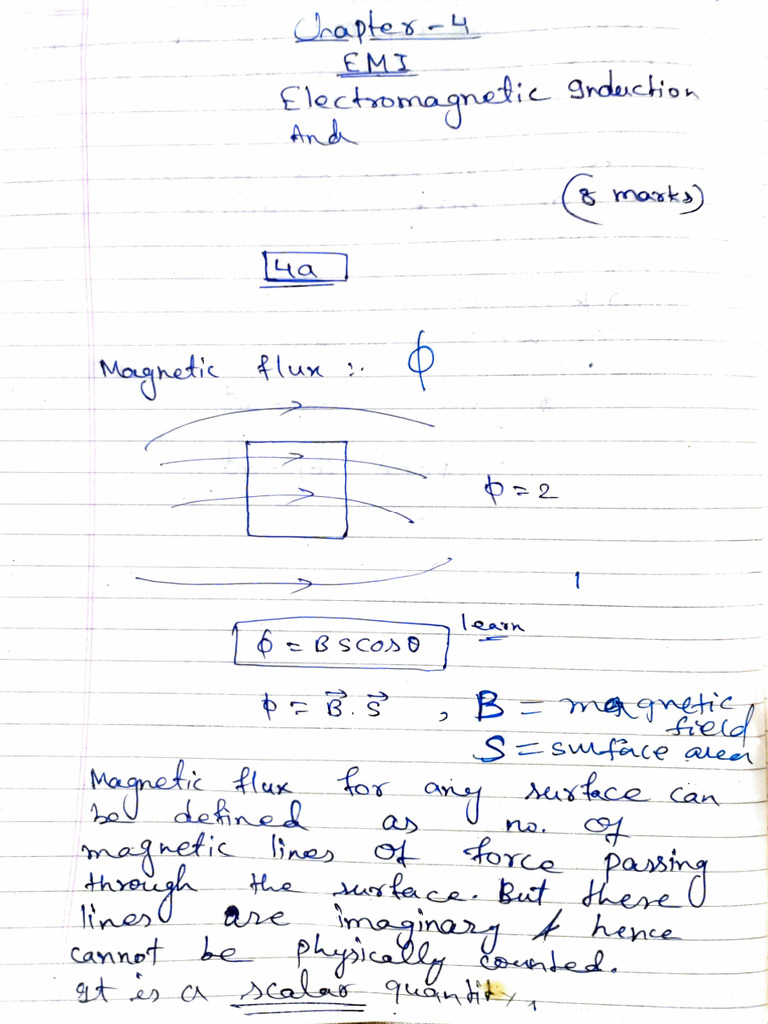 Chapter - 4
EMI
Electromagnetic Induction
And
(8 marks)
4a
Magnetic flux :. ϕ
ϕ = 2
1
ϕ = B S cos θ learn
ϕ = B⃗ . S⃗ , B = magnetic field
S = surface area
Magnetic flux for any surface can
be defined as no. of
magnetic lines of force passing
through the surface. But these
lines are imaginary & hence
cannot be physically counted.
It is a scalar quantity,